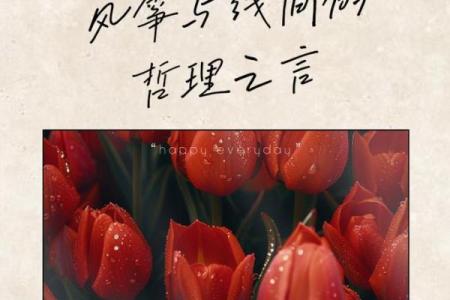 风筝与线间的
哲理之言
“happy everyday”